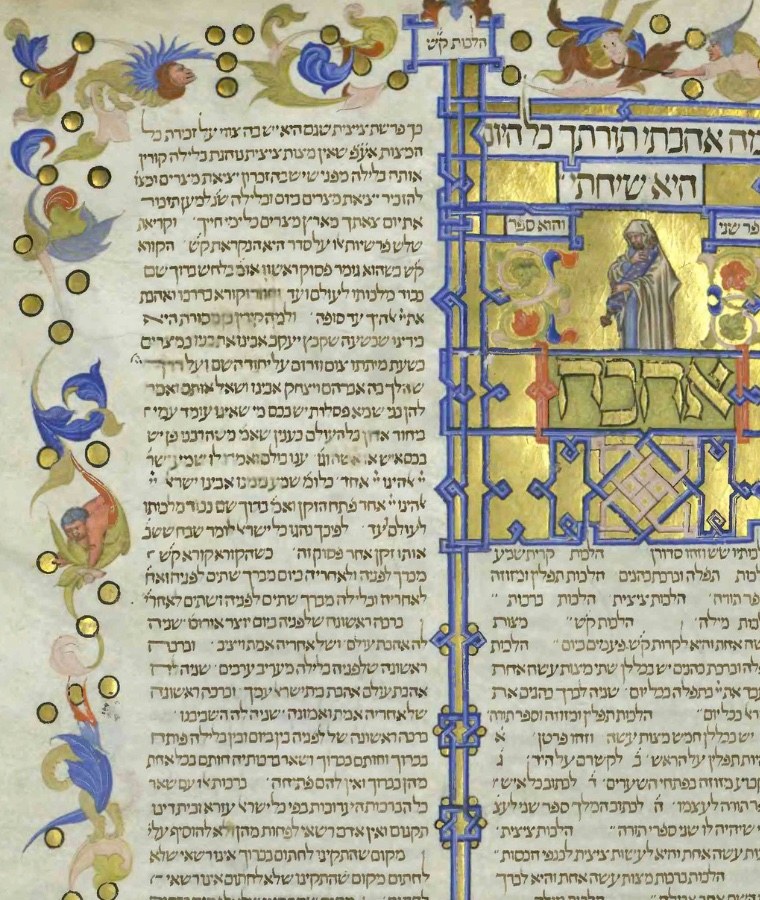 הלכות ק״ש
מה אהבתי תורתך כל היום
היא שיחתי
פר שני והוא ספר
אהבה
הלכות קרית שמע
תפלה וברכת כהנים הלכות תפלין ומזוזה
הלכות ציצית הלכות ברכות
מילה הלכות ק״ש מצות
אחת והיא לקרות ק״ש פעמים ביום הלכות
וברכת כהנים יש בכללן שתי מצות עשה אחת
את י״י בתפלה בכל יום שניה לברך כהנים את
בכל יום הלכות תפלין ומזוזה וספר תורה
יש בכללן חמש מצות עשה וזהו פרטן א
תפלין על הראש ב לקשרם על היד ג
מזוזה בפתחי השערים ד לכתוב כל איש
תורה לעצמו ה לכתוב המלך ספר שני לעצ
שיהיה לו שני ספרי תורה הלכות ציצית
עשה אחת והיא לעשות ציצית לכנפי הכסות
הלכות ברכות מצות עשה אחת והיא לברך
כך פרשת ציצית שגם היא יש בה צווי על זכירת כל
המצות אע״פ שאין מצות ציצית נוהגת בלילה קורין
אותה בלילה מפני שיש בה זכרון יציאת מצרים ומצוה
להזכיר יציאת מצרים ביום ובלילה שנ׳ למען תזכור
את יום צאתך מארץ מצרים כל ימי חייך וקריאת
שלש פרשיות אלו על סדר היא הנקראת ק״ש הקורא
ק״ש כשהוא גומר פסוק ראשון אומ׳ בלחש ברוך שם
כבוד מלכותו לעולם ועד וחוזר וקורא כדרכו ואהבת
את י״י אלהיך עד סופה ולמה קורין כן מסורת היא
בידינו שבשעה שקבץ יעקב אבינו את בניו במצרים
בשעת מיתתו צום וזרזם על יחוד השם ועל דרך י״י
שהלך בה אברהם ויצחק אבינו ושאל אותם ואמר
להן בני שמא פסלות יש בכם מי שאינו עומד עמי
ביחוד אדון כל העולם כענין שאמ׳ משה רבנו פן יש
בכם איש או אשה וגו׳ ענו כולם ואמרו לו שמע ישר׳
י״י אלהינו י״י אחד כלומ׳ שמע ממנו אבינו ישראל י״י
אלהינו י״י אחד פתח הזקן ואמ׳ ברוך שם כבוד מלכותו
לעולם ועד לפיכך נהגו כל ישראל לומר שבח ששבח
אותו זקן אחר פסוק זה כשהקורא קורא ק״ש
מברך לפניה ולאחריה ביום מברך שתים לפניה ואחת
לאחריה ובלילה מברך שתים לפניה ושתים לאחריה
ברכה ראשונה שלפניה ביום יוצר אור וכו׳ שניה
לה אהבת עולם ושל אחריה אמת ויציב וברכה
ראשונה שלפניה בלילה מעריב ערבים שניה לה
אהבת עולם אהבת בית ישראל עמך וברכה ראשונה
של אחריה אמת ואמונה שניה לה השכיבנו
ברכה ראשונה של לפניה בין ביום ובין בלילה פותח
בברוך וחותם בברוך ושאר ברכותיה חותם בכל אחת
מהן בברוך ואין להם פתיחה ברכות אלו עם שאר
כל הברכות הערוכות בפי כל ישראל עזרא ובית דינו
תקנום ואין אדם רשאי לפחות מהן ולא להוסיף עליהן
מקום שהתקינו לחתום בברוך אינו רשאי שלא
לחתום מקום שהתקינו שלא לחתום אינו רשאי